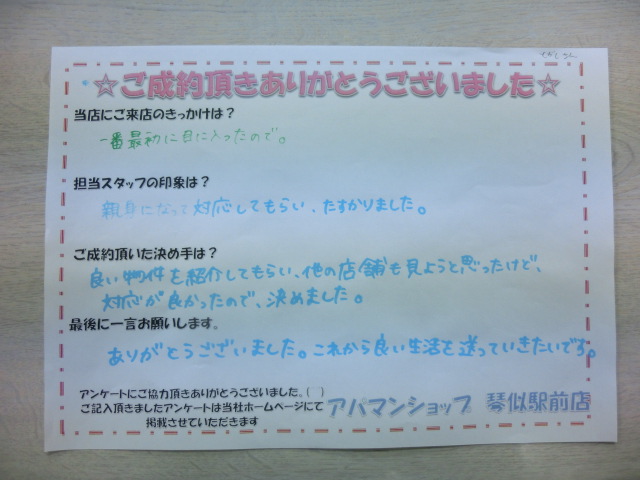 ☆ご成約頂きありがとうございました☆
当店にご来店のきっかけは？
一番最初に目に入ったので。
担当スタッフの印象は？
親身になって対応してもらい、たすかりました。
ご成約頂いた決め手は？
良い物件を紹介してもらい、他の店舗も見ようと思ったけど、
対応が良かったので、決めました。
最後に一言お願いします。
ありがとうございました。これから良い生活を送っていきたいです。
アンケートにご協力頂きありがとうございました。(　)
ご記入頂きましたアンケートは当社ホームページにて
掲載させていただきます
アパマンショップ 琴似駅前店